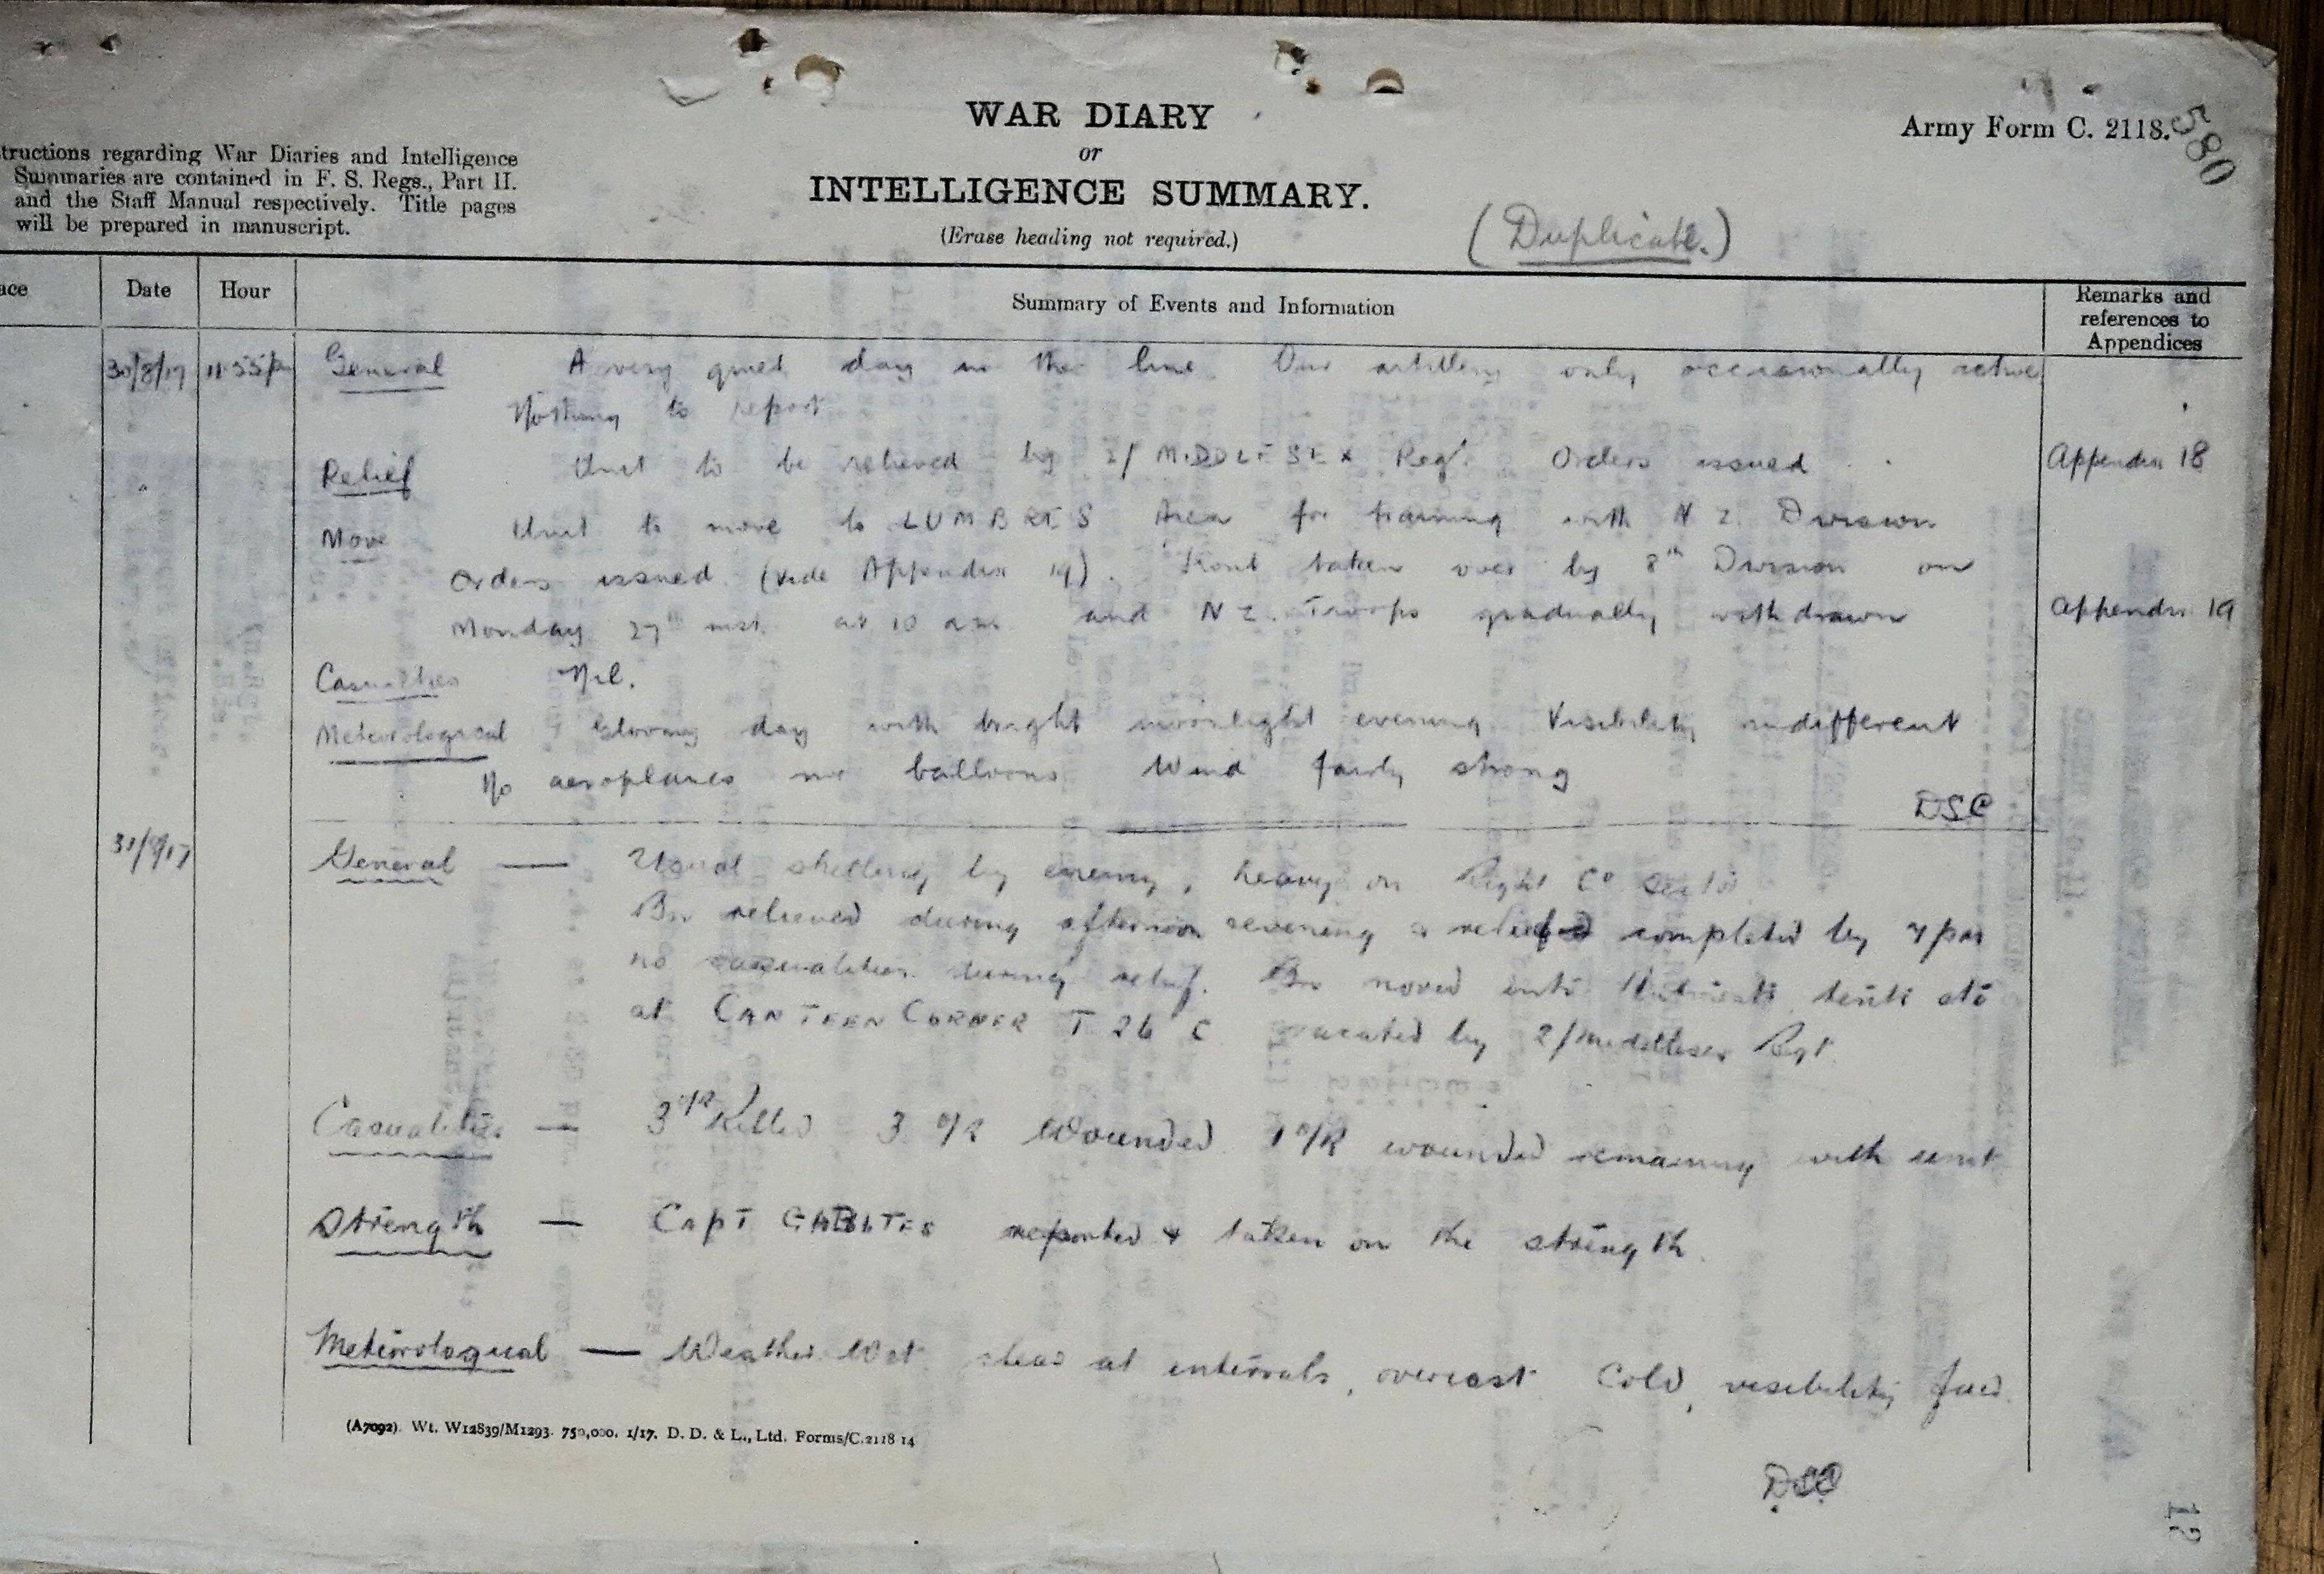 WAR DIARY
or
INTELLIGENCE SUMMARY.
(Erase heading not required.)
(Duplicate.)
Army Form C. 2118.
580
tructions regarding War Diaries and Intelligence
Summaries are contained in F. S. Regs., Part II.
and the Staff Manual respectively. Title pages
will be prepared in manuscript.
ace
Date
Hour
Summary of Events and Information
Remarks and
references to
Appendices
30/8/17 11.55p General A very quiet day in the line. Our artillery only occasionally active
Nothing to report
Relief Unit to be relieved by 2/ MIDDLESEX Regt. Orders issued Appendix 18
Move Unit to move to LUMBRES Area for training with N Z. Division
Orders issued (vide Appendix 19). Front taken over by 8th Division on
Monday 27th inst. at 10 am and N Z. Troops gradually withdrawn Appendix 19
Casualties Nil.
Meteorological Gloomy day with bright moonlight evening Visibility indifferent
No aeroplanes nor balloons Wind fairly strong
DSC
31/8/17 General — Usual shelling by enemy, heavy on Right Co Sector
Bn relieved during afternoon & evening & relief completed by 7 pm
no casualties during relief. Bn moved into tents etc
at CANTEEN CORNER T 26 C vacated by 2/Middlesex Regt.
Casualties — 3 O/R Killed 3 O/R Wounded 1 O/R wounded remaining with unit
Strength — CAPT GABITES reported & taken on the strength.
Meteorological — Weather Wet clear at intervals, overcast Cold, visibility fair.
(A7092) Wt. W12839/M1293. 750,000. 1/17. D. D. & L., Ltd. Forms/C.2118 14